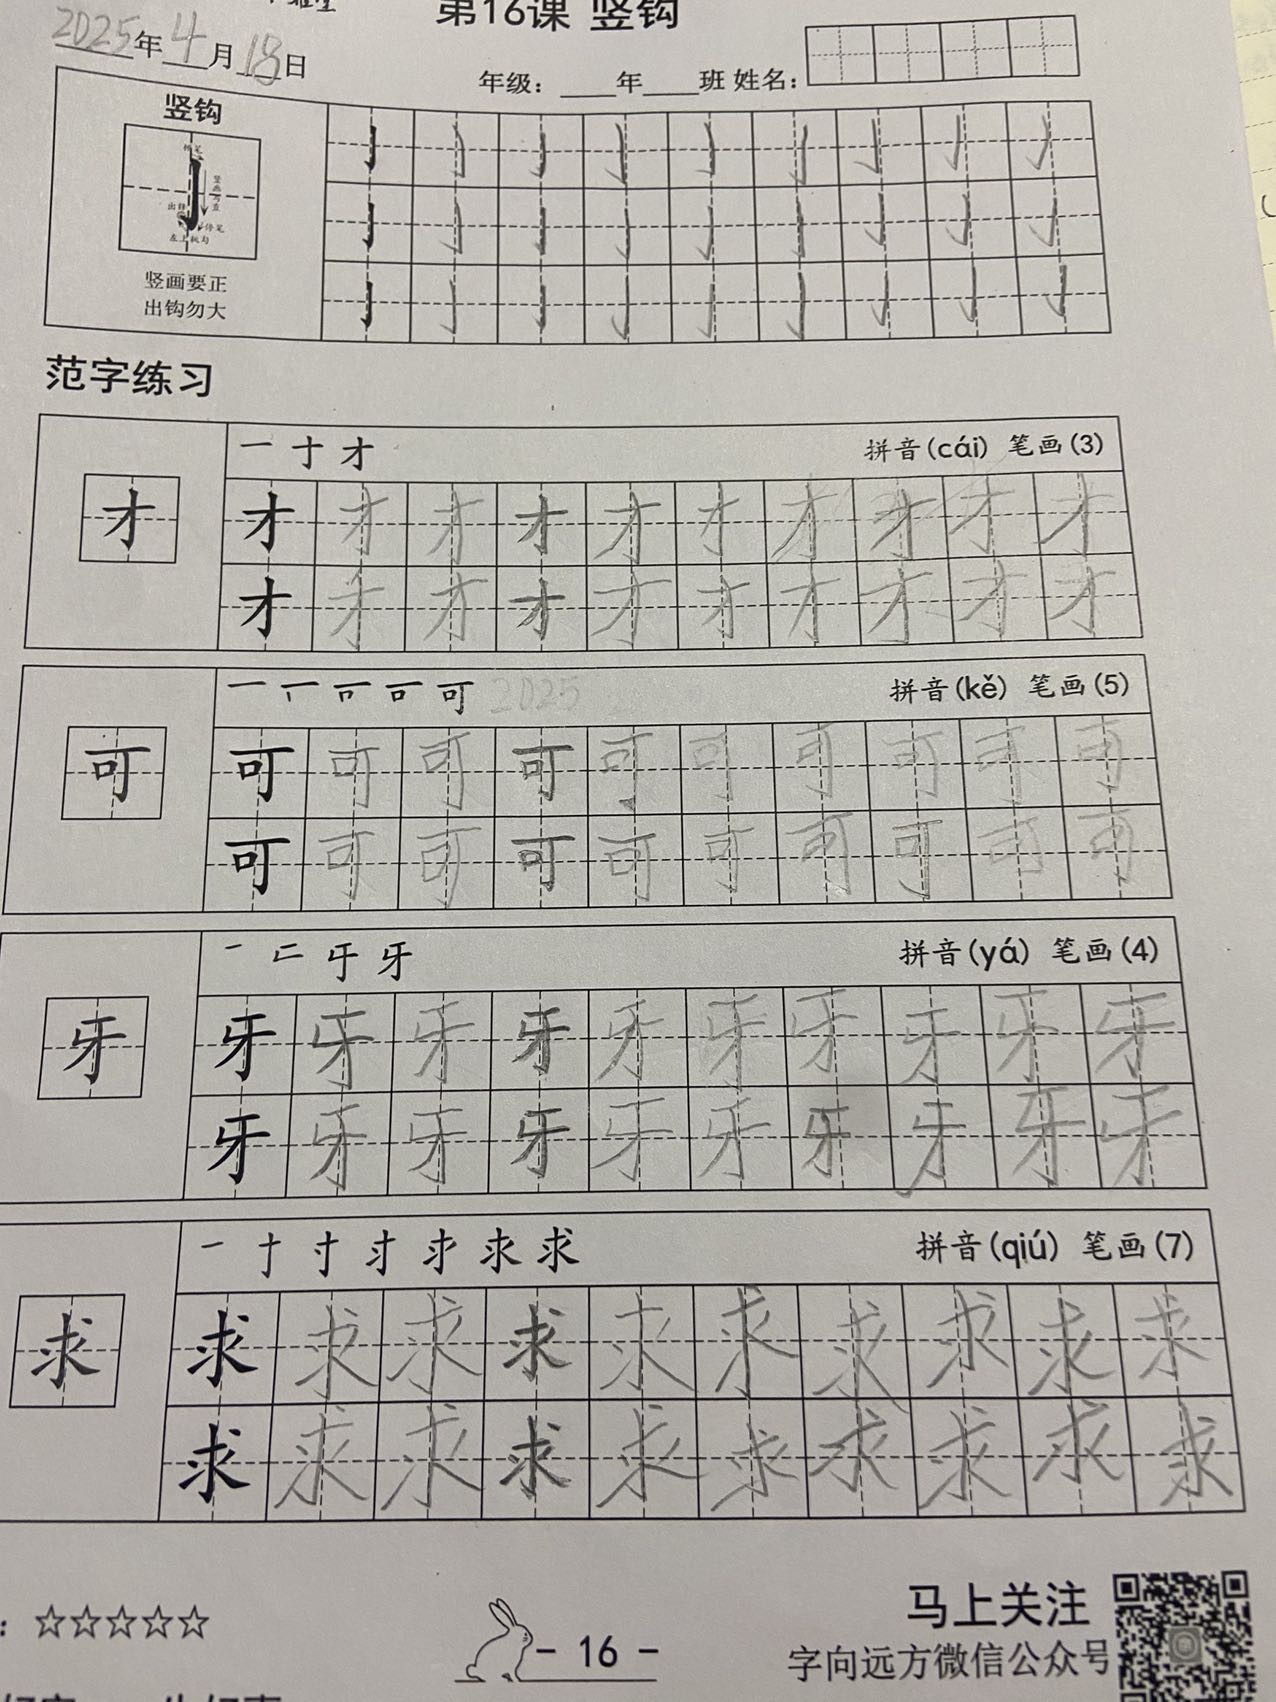 第16课 竖钩
2025年4月18日
年级：____年____班 姓名：
竖钩
竖画要正
出钩勿大
范字练习
一 十 才 拼音(cái) 笔画(3)
才 才 才 才 才 才 才 才 才 才 才
才 才 才 才 才 才 才 才 才 才
可 2025 拼音(kě) 笔画(5)
可 可 可 可 可 可 可 可 可 可 可
可 可 可 可 可 可 可 可 可 可
牙 拼音(yá) 笔画(4)
牙 牙 牙 牙 牙 牙 牙 牙 牙 牙 牙
牙 牙 牙 牙 牙 牙 牙 牙 牙 牙
求 拼音(qiú) 笔画(7)
求 求 求 求 求 求 求 求 求 求 求
求 求 求 求 求 求 求 求 求 求
：☆☆☆☆☆
- 16 -
马上关注
字向远方微信公众号